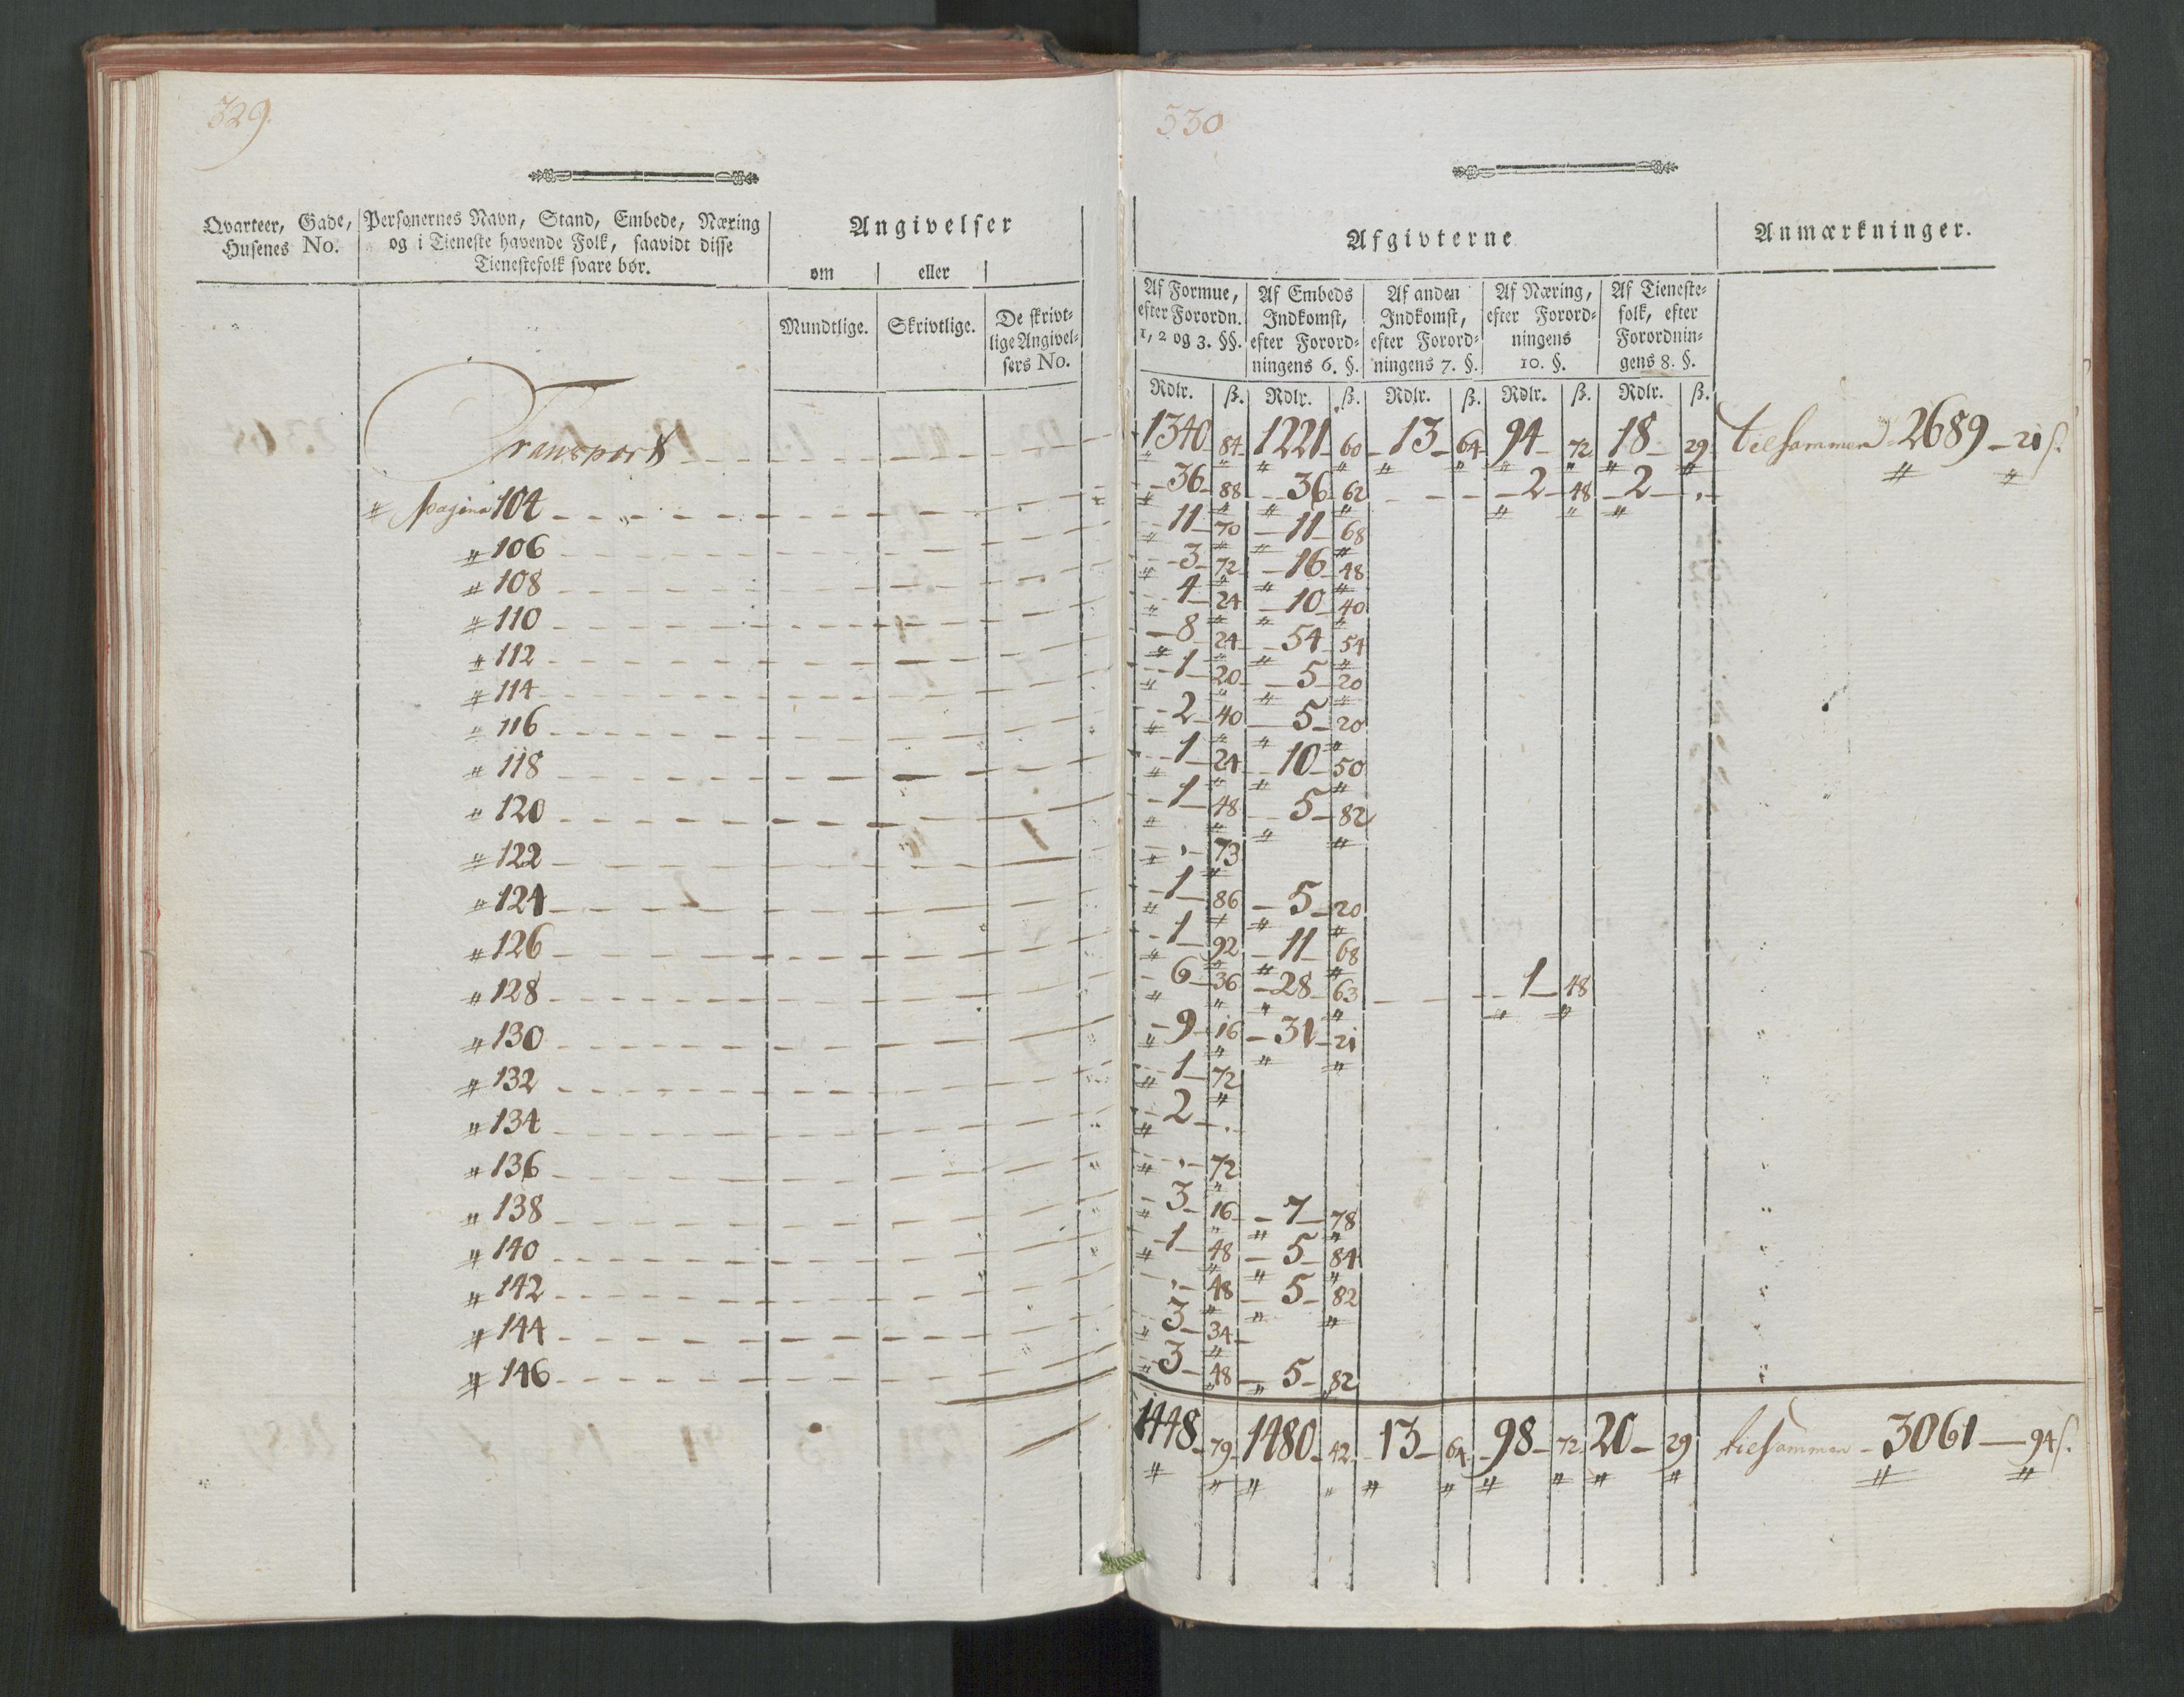 329.
Qvarteer, Gade, Husenes No.
Personernes Navn, Stand, Embede, Næring og i Tieneste havende Folk, saavidt disse Tienestefolk svare bør.
Angivelser
om eller
Mundtlige. Skrivtlige. De skrivtlige Angivelsers No.
330
Afgivterne
Anmærkninger.
Af Formue, efter Forordn. 1, 2 og 3. §§.
Af Embeds Indkomst, efter Forordningens 6. §.
Af anden Indkomst, efter Forordningens 7. §.
Af Næring, efter Forordningens 10. §.
Af Tienestefolk, efter Forordningens 8. §.
Rdlr. ß. Rdlr. ß. Rdlr. ß. Rdlr. ß. Rdlr. ß.
Transport 1340 84 1221 60 13 64 94 72 18 29 tilsammen 2689 21 ß.
" pagina 104 36 88 36 62 2 48 2 .
" 106 11 70 11 68
" 108 3 72 16 48
" 110 4 24 10 40
" 112 8 24 54 54
" 114 1 20 5 20
" 116 2 40 5 20
" 118 1 24 10 50
" 120 1 48 5 82
" 122 . 73
" 124 1 86 5 20
" 126 1 92 11 68
" 128 6 36 28 63 1 48
" 130 9 16 31 21
" 132 1 72
" 134 2 .
" 136 . 72
" 138 3 16 7 78
" 140 1 48 5 84
" 142 . 48 5 82
" 144 3 34
" 146 3 48 5 82
1448 79 1480 42 13 64 98 72 20 29 tilsammen 3061 94 ß.